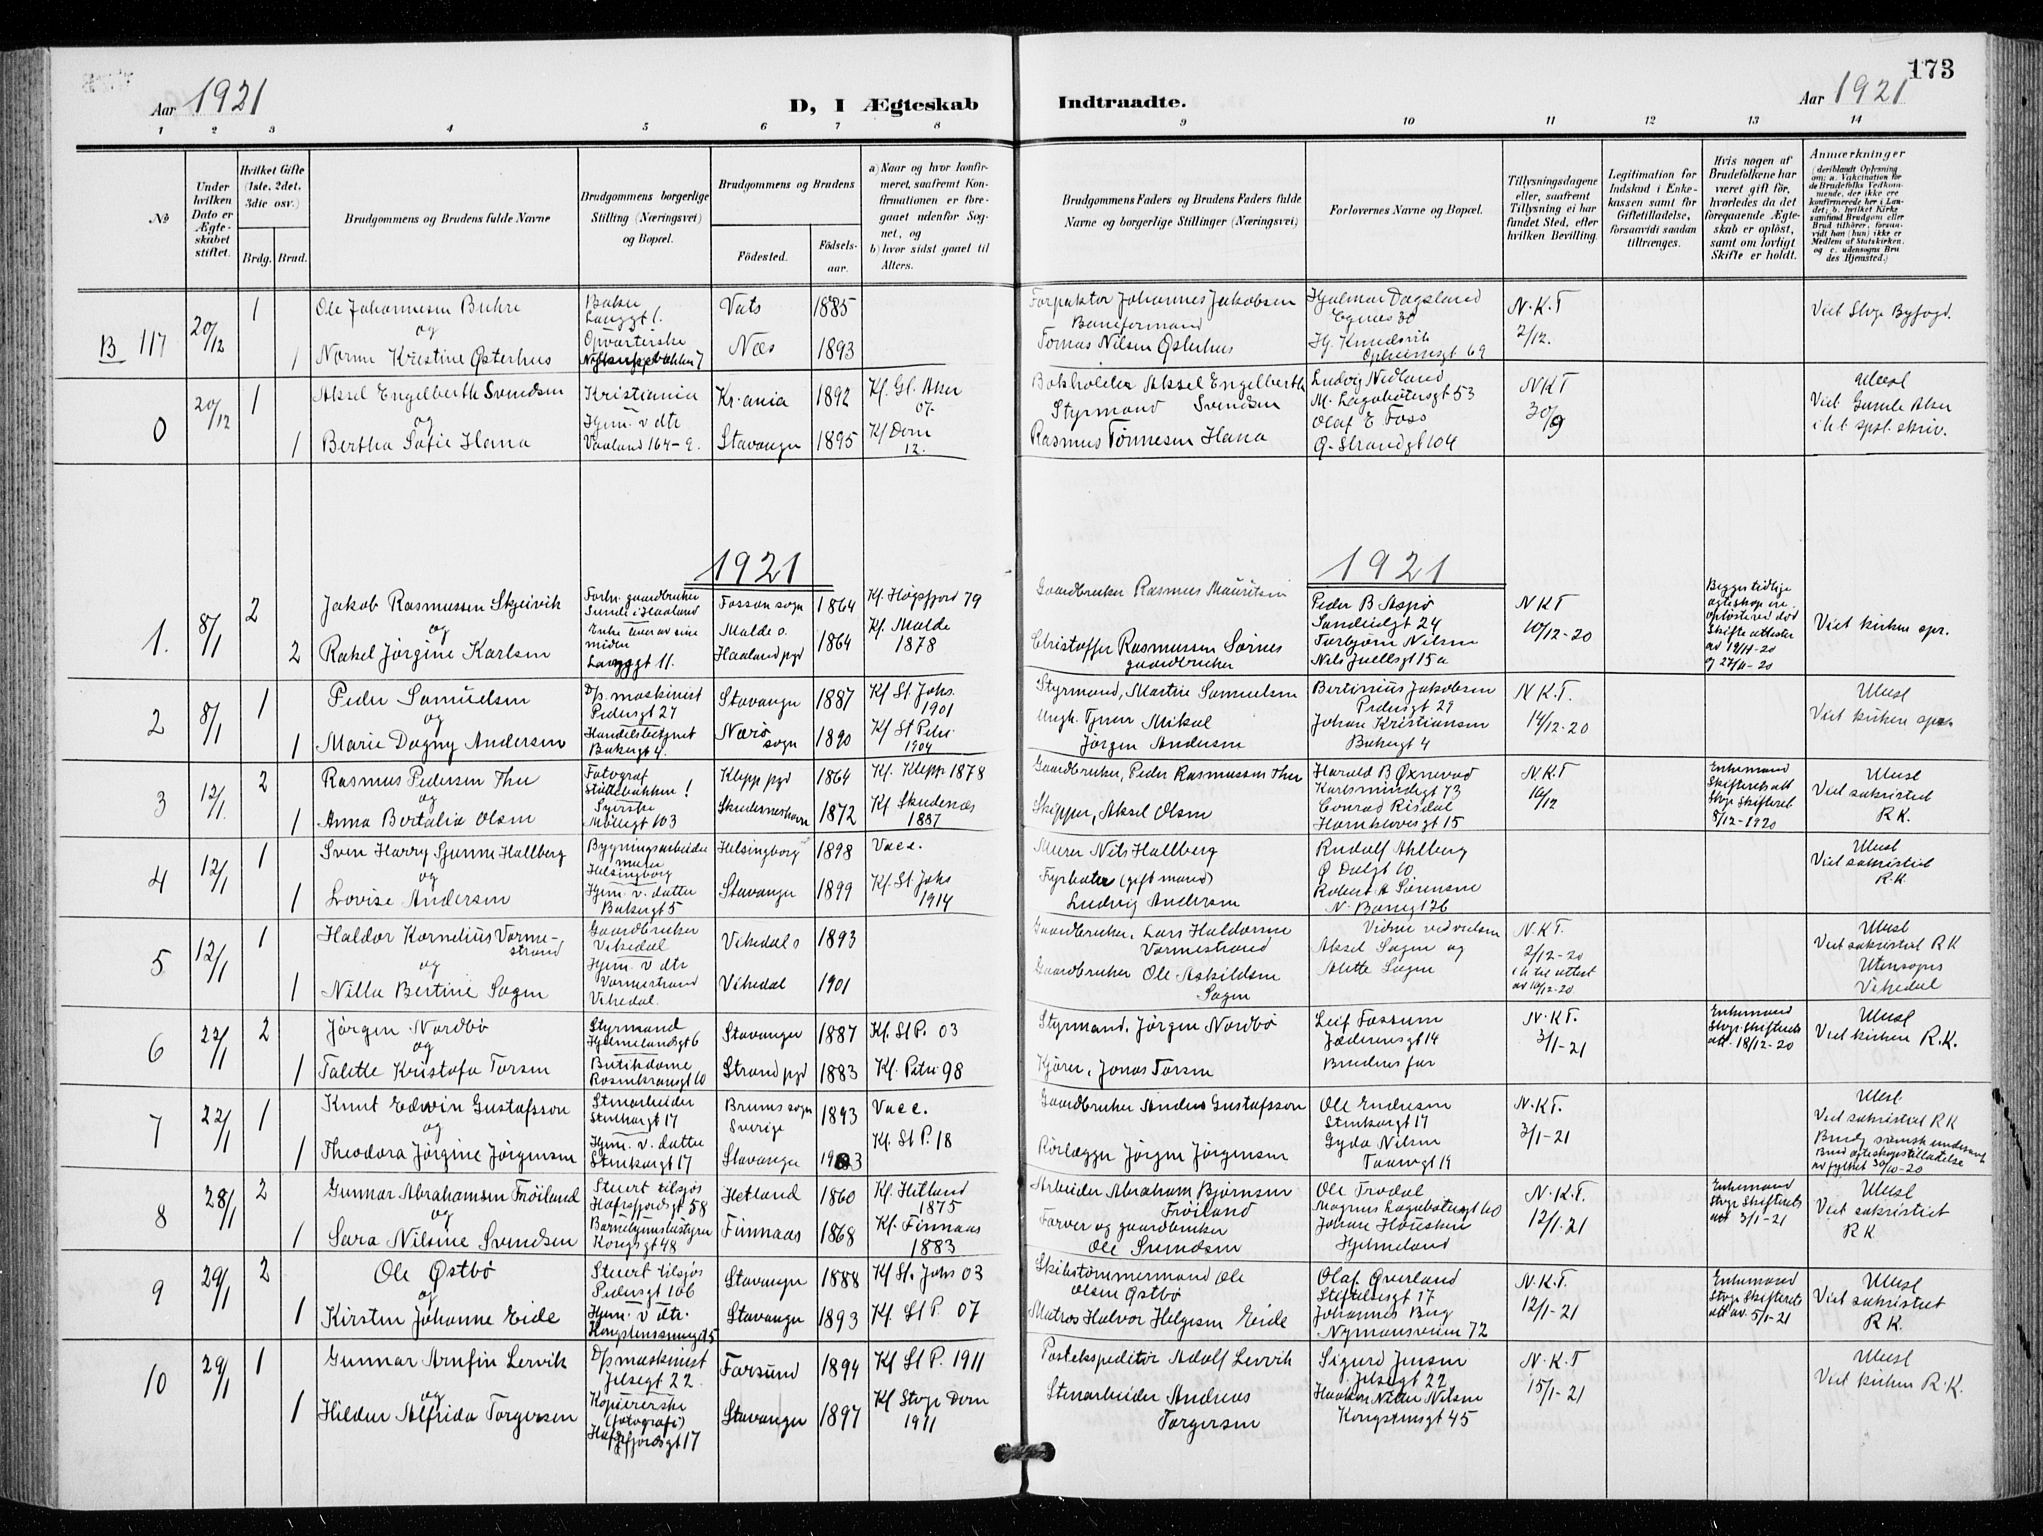 173
Aar 1921
D, I Ægteskab Indtraadte.
Aar 1921
1 2 3 4 5 6 7 8 9 10 11 12 13 14
No
Under hvilken Dato er Ægteskabet stiftet.
Hvilket Gifte (1ste, 2det, 3die osv.)
Brdg. Brud.
Brudgommens og Brudens fulde Navne
Brudgommens borgerlige Stilling (Næringsvei) og Bopæl.
Brudgommens og Brudens
Fødested.
Fødselsaar.
a) Naar og hvor konfirmeret, saafremt Konfirmationen er foregaaet udenfor Sognet, og
b) hvor sidst gaaet til Alters.
Brudgommens Faders og Brudens Faders fulde Navne og borgerlige Stillinger (Næringsvei)
Forlovernes Navne og Bopæl.
Tillysningsdagene eller, saafremt Tillysning ei har fundet Sted, efter hvilken Bevilling.
Legitimation for Indskud i Enkekassen samt for Giftetilladelse, forsaavidt saadan tiltrænges.
Hvis nogen af Brudefolkene har været gift før, hvorledes da det foregaaende Ægteskab er opløst, samt om lovligt Skifte er holdt.
Anmærkninger
B 117 20/12 1
Ole Johannesen Buhre
Baker
Langgt 1.
Vats 1885
Forpaktor Johannes Jakobsen
Hjalmar Dagsland
Egnes 30
N.K.T
2/12.
Viet Stvgr Byfogd.
og
1 Norma Kristine Østerhus
Opvarterske
Næs 1893
Baneformand
Tomas Nilsen Østerhus
Hj. Knudsvik
69
0 20/12 1
Aksel Engelberth Svendsen
Kristiania
Kr.ania 1892
Kf. Gl. Aker
07.
Bokholder Aksel Engelberth
Svendsen
Ludvig Nedland
M. Lagabøtersgt 53
NKT
30/9
Ulæst
Viet Gamle Aker
og
1 Bertha Sofie Hana
Hjem. v dtr
Vaaland 164-9.
Stavanger 1895
Kf Dom
12.
Styrmand
Rasmus Tønnesen Hana
Olaf E Foss
Ø. Strandgt 104
1921
1921
1. 8/1 2
Jakob Rasmussen Skjeivik
Forh. gaardbruker
Sunde i Haaland
Fossan sogn 1864
Kf. Høgsfjord 79
Gaardbruker Rasmus Mauritsen
Peder B Aspø
Sandeidgt 24
NKT
10/12-20
Begges tidlige
egteskap ere
opløste ved død
Skifteattester
av 19/11-20
og 27/11-20
Viet kirken spr.
og
2 Rakel Jørgine Karlsen
Enke lever av sine
midler
Langgt 11.
Malde o.
Haaland pgd 1864
Kf. Malde
1878
Christoffer Rasmussen Sørnes
gaardbruker
Torbjørn Nilsen
Nils Juelsgt 15a
2 8/1 1
Peder Samuelsen
Dp. maskinist
Pedersgt 27
Stavanger 1887
Kf St Johs.
1901
Styrmand, Martin Samuelsen
Bertinius Jakobsen
Pedersgt 29
N.K.T.
14/12-20
Ulæst
Viet kirken spr.
og
1 Marie Dagny Andersen
Handelsbetjent
Bakergt 4.
Nærø
sogn 1890
Kf St Petri
1904
Mikal
Jørgen Andersen
Johan Kristiansen
Bakergt 4
3 12/1. 2
Rasmus Pedersen Thu
Fotograf
Støttebakken !
Klepp pgd 1864
Kf. Klepp 1878
Gaardbruker, Peder Rasmussen Thu
Harald B Øxnevad
Karlsmindegt 73
N.K.T
10/12
Enkemand
Skifteretsatt
Stvgr Skifteret
8/12-1920
Ulæst
Viet sakristiet
R K.
og
1 Anna Bertalia Olsen
Syerske
Møllegt 103
Skudeneshavn 1872
Kf Skudenæs
1887
Skipper, Aksel Olsen
Conrad Risdal
Haarkløvesgt 15
4 12/1 1
Sven Harry Gunnar Hallberg
Bygningsarbeider
Helsingborg
Helsingborg 1898
Vacc.
Murer Nils Hallberg
Rudolf Ahlberg
Ø Dalgt 10
Ulæst
Viet sakristiet
R.K.
og
1 Lovise Andersen
Hjem. v. datter
Bakergt 5
Stavanger 1899
Kf. St. Johs
1914
Fyrbøter (gift mand)
Ludvig Andersen
Robert A Sørensen
N. Banegt 26
5 12/1 1
Haldor Kornelius Vormestrand
Gaardbruker
Vikedal
Vikedal s 1893
Gaardbruker, Lars Haldorsen
Vormestrand
Vidne ved vielsen
Aksel Sagen og
Alette Sagen
N.K.T.
2/12-20
av 10/12-20
Ulæst
Viet sakristiet R K
Utensogns
Vikedal
og
1 Nilla Bertine Sagen
Hjem. v dtr
Vormestrand
Vikedal.
Vikedal 1901
Gaardbruker Ole Askildsen
Sagen
6 22/1 2
Jørgen Nordbø
Styrmand
Hjelmelandsgt 6
Stavanger 1887
Kf. St P. 03
Styrmand, Jørgen Nordbø
Leif Fossum
Jæderensgt 14
N.K.T.
3/1-21
Enkemand
Stvgr. skifterets
att. 18/12-20
Ulæst
Viet kirken R.K.
og
1 Talette Kristofa Torsen
Butikdame
Rosenkransgt 10
Strand pgd 1883
Kf. Petri 98
Kjører, Jonas Torsen
Brudens far
7 22/1 1
Knut Edwin Gustafsson
Stenarbeider
Stenhavgt 17
Brums sogn
Sverige 1893
Vacc.
Gaardbruker Anders Gustafsson
Ole Endresen
Stenkargt 17
N.K.T.
3/1-21
Ulæst
Viet sakristiet R K
og
1 Theodora Jørgine Jørgensen
Hjem. v. datter
Stenkargt 17
Stavanger
Kf. St P. 18
Rørlægger Jørgen Jørgensen
Gyda Nilsen
Taarngt 19
8 28/1 2
Gunnar Abrahamsen Frøiland
Stuert tilsjøs
Hafrsfjordsgt 58
Hetland 1860
Kf. Hetland
1875
Arbeider Abraham Bjørnsen
Frøiland
Ole Frodal
Magnus Lagabøtersgt 60
N.K.T.
12/1-21
Enkemand
Stvgr Skifterets
att 3/1-21
Ulæst
Viet sakristiet
R K.
og
1 Sara Nilsine Svendsen
Barnehjemsbestyrer
Kongsgt 48
Finnaas 1868
Kf. Finnaas
1883
Farver og gaardbruker
Ole Svendsen
Johan Houeskru
Hjelmeland
9 29/1 2
Ole Østbø
Stuert tilsjøs
Pedersgt 106
Stavanger 1888
Kf St. Johs 03
Skibstømmermand Ole
Olsen Østbø
Olaf Øverland
Stiftelsesgt 17
N.K.T.
12/1-21
Enkemand
Stvgr Skifterets
att av. 5/1-21
Ulæst
Viet sakristiet
R K.
og
1 Kirsten Johanne Eide
Hjem. v dtr.
Kongstenssmuget 5
Stavanger 1893
Kf. St P. 07
Matros Halvor Helgesen Eide
Johannes Berg
Nymansveien 72
10 29/1 1
Gunnar Arnfin Lervik
Dp maskinist
Jelsegt 22
Farsund 1894
Kf St P. 1911
Postekspeditør Adolf Lervik
Sigurd Jensen
Jelsegt 22
N.K.T
15/1-21
Ulæst
Viet kirken R.K.
og
1 Hildur Alfrida Torgersen
Kopiererske
(fotografi)
Hafrsfjordsgt 17
Stavanger 1897
Kf Stvgr Dom
1911
Stenarbeider Andreas
Torgersen
Haakon Nilsen
Kongstensgt 45